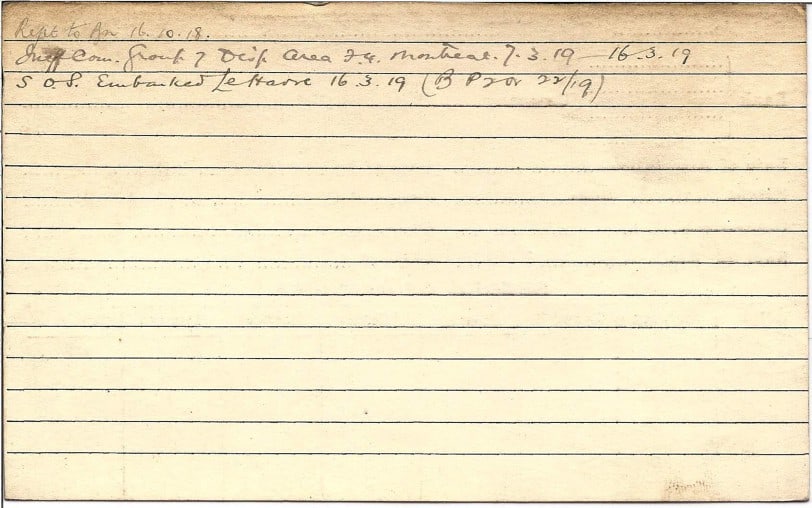 Rept to Bn 16.10.18.
Com. Group 7 Disp Area Montreal. 7.3.19 — 16.3.19
S.O.S. Embarked Le Havre 16.3.19 (B P2or 22/19)